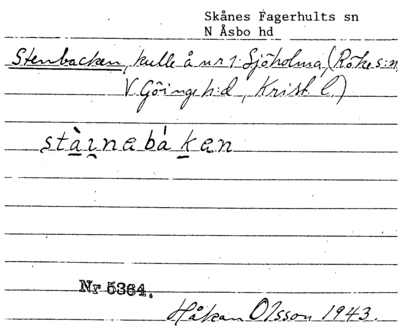 Skånes Fagerhults sn
N Åsbo hd
Stenbacken, kulle å nr 1 Sjöholma, (Röke s:n,
V. Göinge h:d, Krist. l.)
stàinabákan
Nr 5364.
Håkan Olsson 1943.